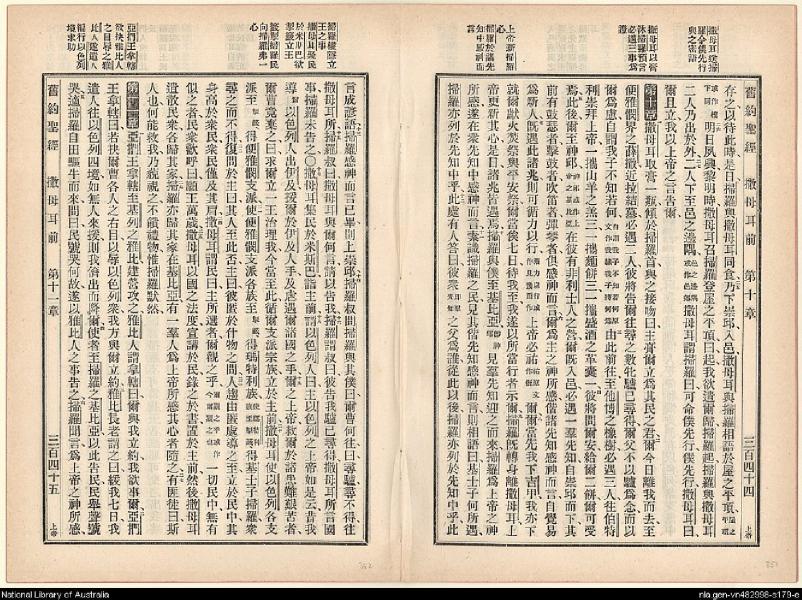 舊約聖經 撒母耳前 第十章 三百四十四 上帝
撒母耳以膏沐掃羅預言必遇三事爲證
上帝新掃羅心
掃羅於諸先知中感神而言
存之以待此時是日掃羅與撒母耳同食乃下崇邱入邑撒母耳與掃羅相語於屋之平頂
明日夙興黎明時撒母耳召掃羅登屋之平頂曰起我欲遣爾歸掃羅起掃羅與撒母耳
二人乃出於外二人下至邑之邊隅撒母耳謂掃羅曰可命僕先行僕先行撒母耳曰
爾且立我以上帝之言告爾
第十章 撒母耳取膏一瓶傾於掃羅首與之接吻曰主膏爾立爲其民之君爾今日離我而去至
便雅憫界之薛撒近拉結墓必遇二人彼將告爾曰爾往尋之數牝驢已尋得爾父不以驢爲念而以
爾爲慮自謂我子不知若何由此前往至他博之橡樹必遇三人往伯特
利崇拜上帝一攜山羊之羔三一攜麵餅三一攜盛酒之革囊一彼將問爾安給爾二餅爾可受
焉此後爾至上帝邱在彼有非利士人之營爾既入邑必遇一羣先知自崇邱而下其
前有鼓瑟者擊鼓者吹笛者彈琴者俱感神而言爾爲主之神所感偕諸先知感神而言自覺易
爲新人既遇此諸兆則可循力以行上帝必祐爾爾當先我下吉甲我亦下
就爾獻火焚祭與平安祭爾當俟七日待我至我遂以所當行者示爾掃羅既轉身離撒母耳上
帝更新其心是日諸兆皆遇焉掃羅與僕至基比亞見羣先知迎之而來掃羅爲上帝之神
所感遂在衆先知中感神而言素識掃羅者見其偕先知感神而言則相語曰基士子何所遇
掃羅亦列於先知中乎此處有人答曰彼衆之父爲誰從此以後掃羅亦列於先知中乎此
言成諺語掃羅感神而言已畢則上崇邱掃羅叔問掃羅與其僕曰爾曹何往曰尋驢尋不得往
撒母耳所掃羅叔曰撒母耳與爾何言請以告我掃羅謂叔曰彼告我驢已尋得撒母耳所言國
事掃羅未告之○撒母耳集民於米斯巴詣主前謂以色列人曰主以色列之上帝如是云昔我
導以色列人出伊及援爾於伊及人手及虐遇爾諸國之手爾之上帝救爾於諸患難艱苦者
爾曹竟棄之曰求爾立一王治理我今當至此循爾支派宗族立於主前撒母耳使以色列各支
派至得便雅憫支派使便雅憫支派各族至得瑪特利族得基士子掃羅衆
尋之而不得復問於主曰其人至此否主曰彼匿於什物之間人趨由匿處導之至立於民中其
身高於衆民衆民僅及其肩撒母耳謂民曰主所選者爾觀之乎一切民中無有
似之者民衆歡呼曰願王萬歲撒母耳以國之法度宣講於民錄之於書置於主前然後撒母耳
遣散民衆各歸其家掃羅亦歸其家在基比亞有一羣人爲上帝所感其心者隨之有匪徒曰斯
人也何能救我乃藐視之不饋禮物惟掃羅默然
第十一章 亞捫王拿轄至基列之雅比建營攻之雅比人謂拿轄曰爾與我立約我欲事爾亞捫
王拿轄曰若抉爾曹各人之右目以辱以色列衆我乃與爾立約雅比長老謂之曰緩我七日我
遣人往以色列四境如無人來援則我儕出而降爾使者至掃羅之基比亞以此告民民舉聲號
哭適掃羅自田驅牛而來問曰民號哭何故遂以雅比人之事告之掃羅聞言爲上帝之神所感
掃羅掣籤立王之事
亞捫王拿轄欲抉雅比人之目辱之雅比人遂遣人以色列境求助
舊約聖經 撒母耳前 第十一章 三百四十五 上帝
352
351
National Library of Australia
nla.gen-vn482998-s179-e